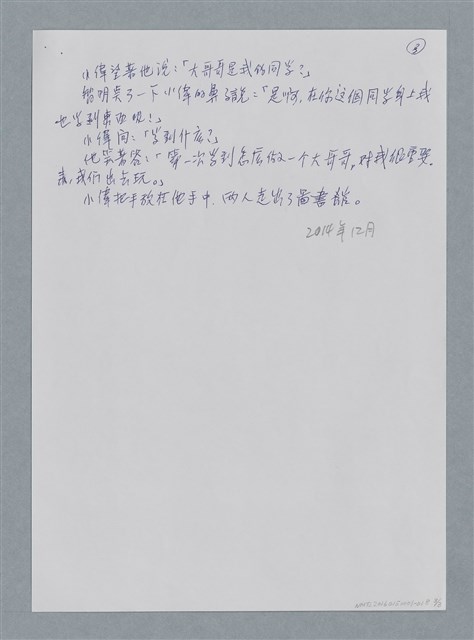 ③
小偉望著他说：「大哥哥是我的同学？」
智明点了一下小偉的鼻子說：「是啊，在你这個同学身上我
也学到東西呢！」
小偉问：「学到什么？」
他笑著答：「第一次学到怎么做一个大哥哥，对我很重要。
我们出去玩。」
小偉把手放在他手中，两人走出了圖書館。
2014年12月